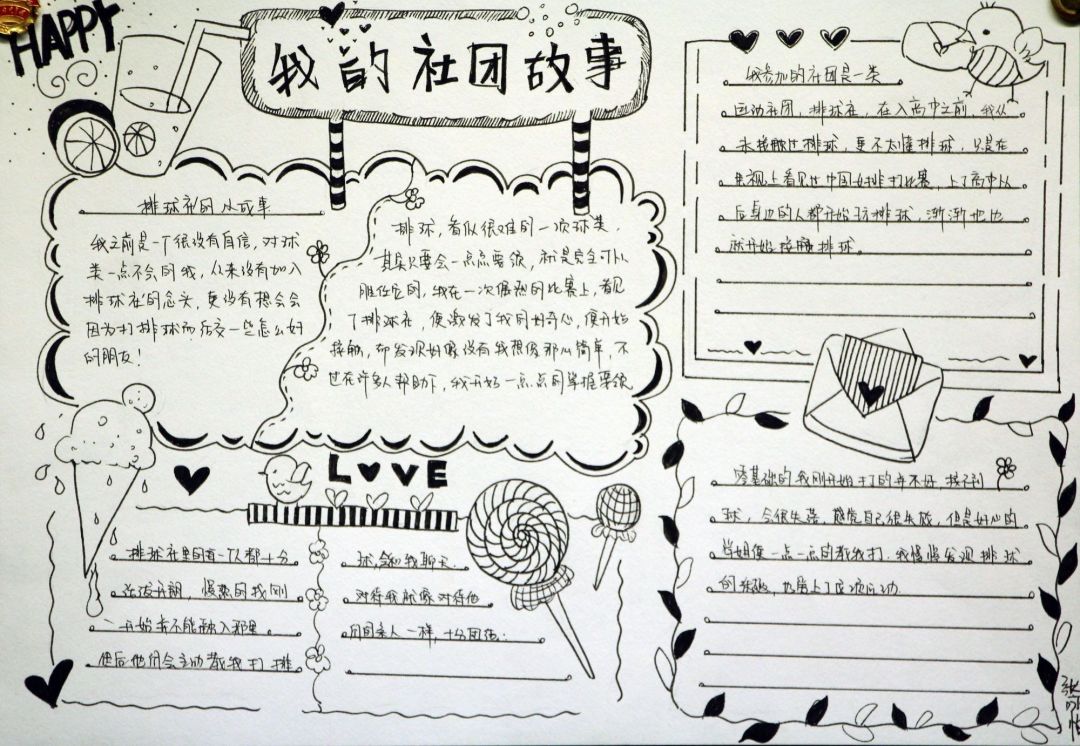 HAPPY
我的社团故事
排球社的小故事
我之前是一个很没有自信，对球
类一点不会的我，从来没有加入
排球社的念头，更没有想会会
因为打排球而结交一些怎么好
的朋友！
排球，看似很难的一次球类，
其实只要会一点点要领，就是完全可以
胜任它的，我在一次偶然的比赛上，看见
了排球社，便激发了我的好奇心，便开始
接触，却发现好像没有我想像那么简单，不
过在许多人帮助下，我开始一点点的掌握要领
我参加的社团是一类
运动社团，排球社，在入高中之前，我从
未接触过排球，更不太懂排球，只是在
电视上看见过中国女排打比赛，上了高中以
后身边的人都开始玩排球，渐渐地也
就开始接触排球。
LOVE
排球社里的有一队人都十分
活泼开朗，慢热的我刚
一开始并不能融入那里。
但后他们会主动教我打排
球，会和我聊天.
对待我就像对待他
们同亲人一样，十分团结.
零基础的我刚开始打的并不好，接不到
球，会很失落，感觉自己很失败，但是好心的
学姐便一点一点的教我打.我慢慢发现排球
的乐趣，也爱上了这项运动